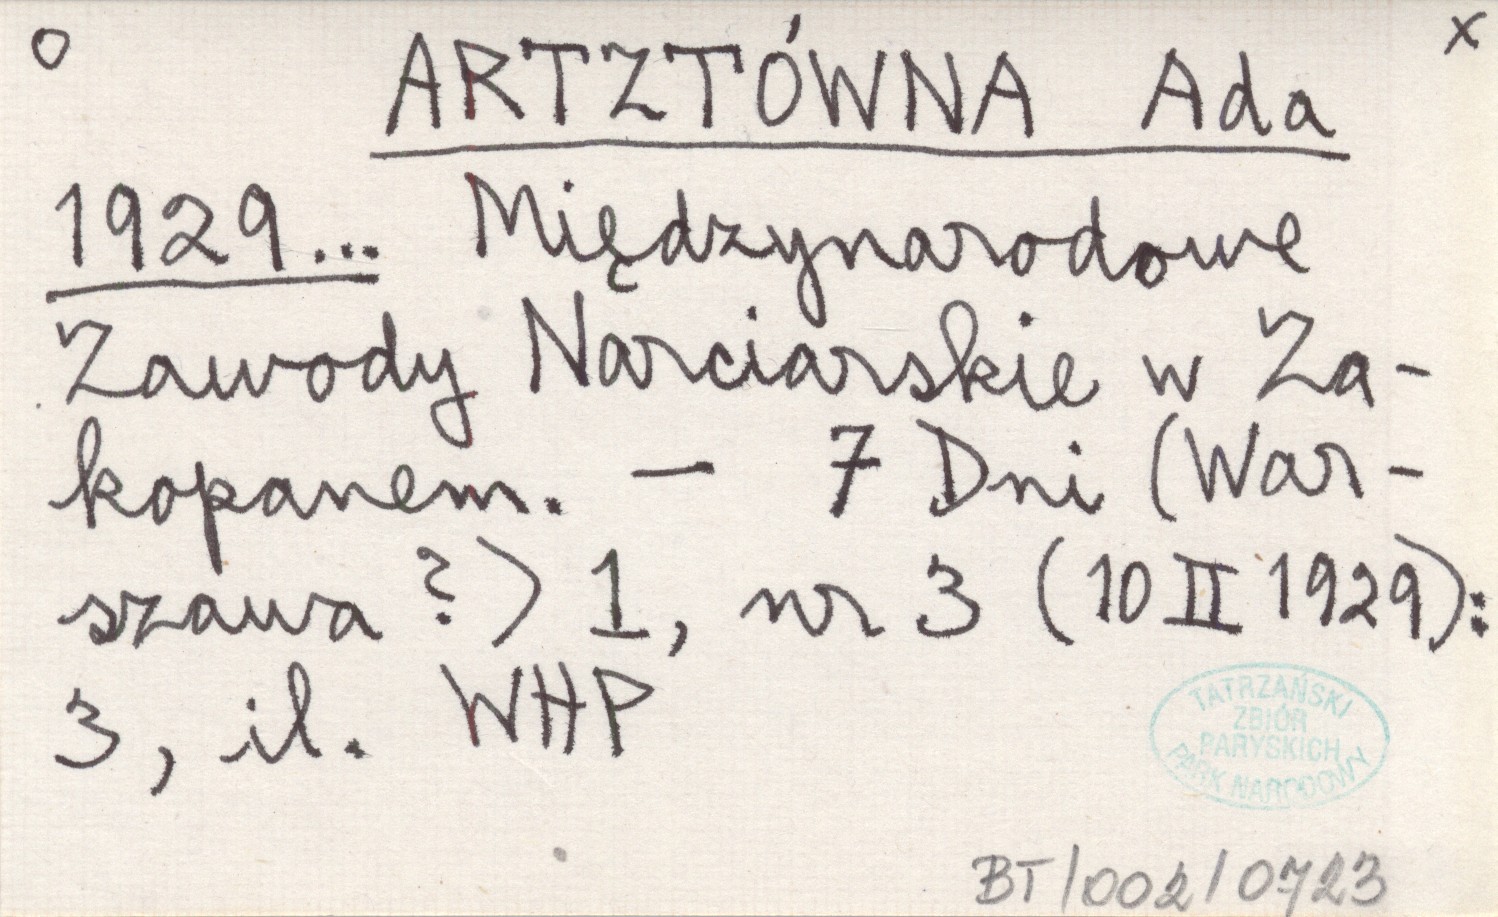 O ARTZTÓWNA Ada x
1929... Międzynarodowe
Zawody Narciarskie w Za-
kopanem. — 7 Dni (War-
szawa?) 1, nr 3 (10 II 1929):
3, il. WHP
TATRZAŃSKI
ZBIÓR
PARYSKICH
PARK NARODOWY
BT/002/0723